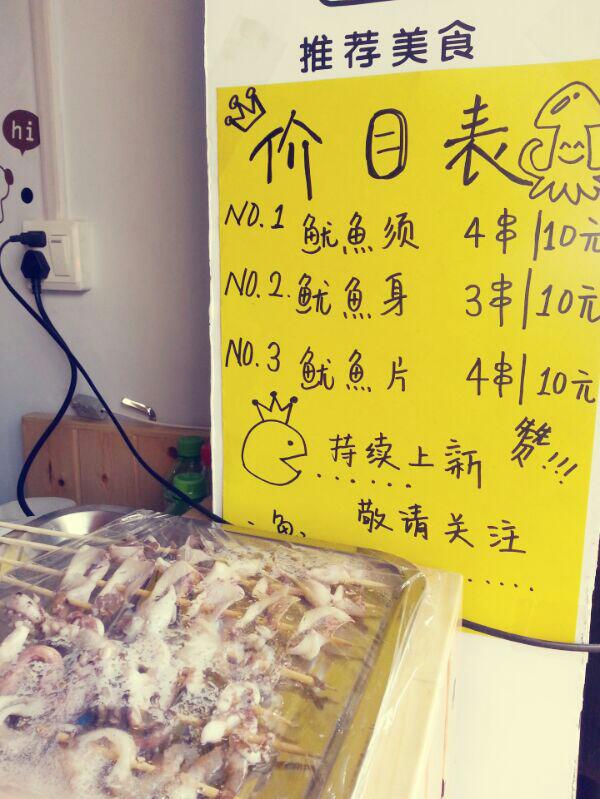 推荐美食
价目表
hi
NO.1 鱿魚须 4串/10元
NO.2. 鱿魚身 3串/10元
NO.3 鱿魚片 4串/10元
持续上新
......
敬请关注
......